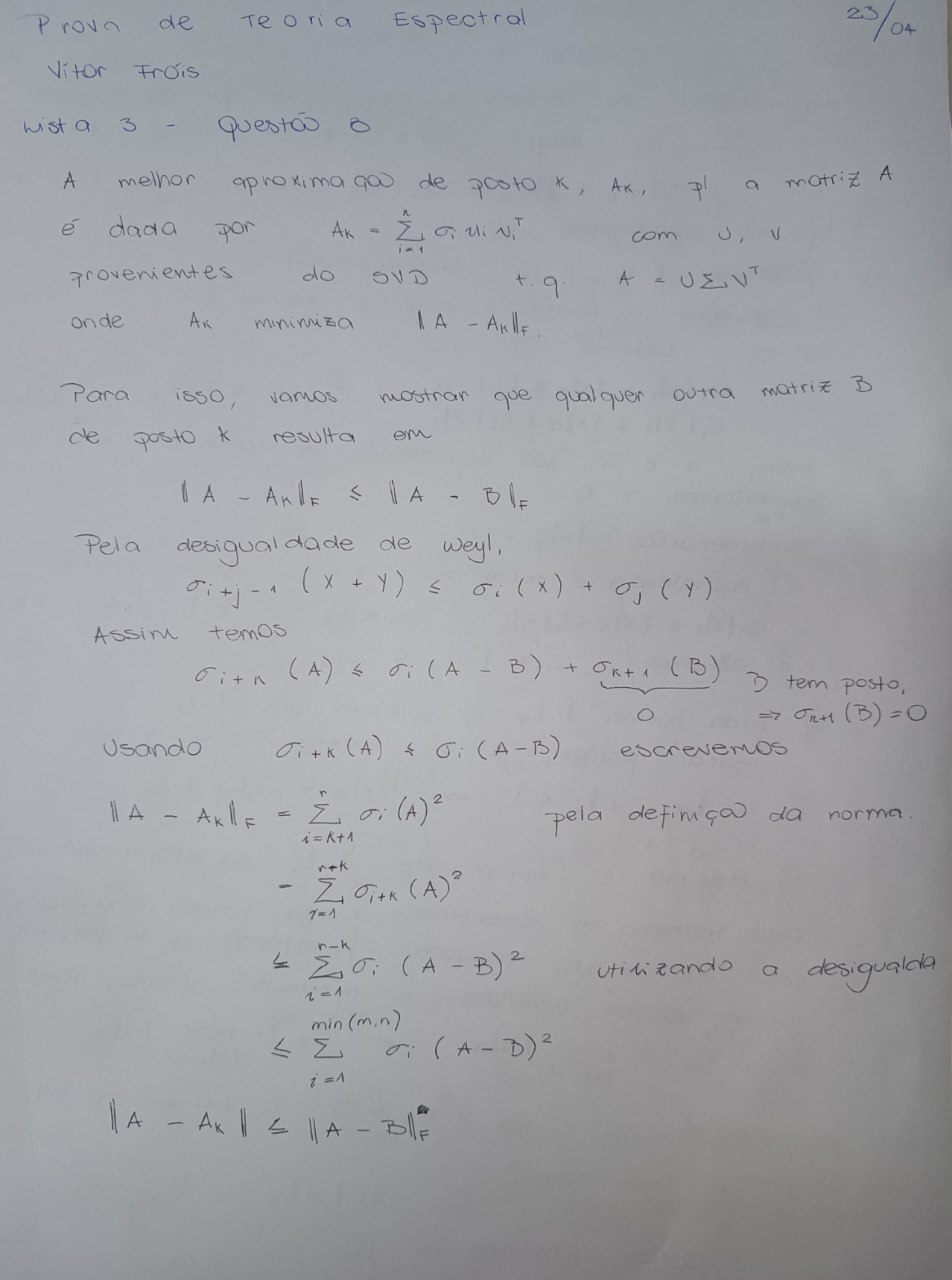 Prova de Teoria Espectral 23/04
Vitor Fróis
Lista 3 - Questão 8
A melhor aproximação de posto K, A_K, p/ a matriz A
é dada por A_K = Σ_{i=1}^{r} σ_i u_i v_i^T com U, V
provenientes do SVD t.q. A = UΣV^T
onde A_K minimiza ‖A - A_K‖_F.
Para isso, vamos mostrar que qualquer outra matriz B
de posto K resulta em
‖A - A_K‖_F ≤ ‖A - B‖_F
Pela desigualdade de Weyl,
σ_{i+j-1} (X + Y) ≤ σ_i (X) + σ_j (Y)
Assim temos
σ_{i+K} (A) ≤ σ_i (A - B) + σ_{K+1} (B) B tem posto,
0 ⇒ σ_{K+1} (B) = 0
Usando σ_{i+K} (A) ≤ σ_i (A-B) escrevemos
‖A - A_K‖_F = Σ_{i=K+1}^{r} σ_i (A)^2 pela definição da norma.
= Σ_{i=1}^{r+K} σ_{i+K} (A)^2
≤ Σ_{i=1}^{r-K} σ_i (A - B)^2 utilizando a desigualda
≤ Σ_{i=1}^{min(m,n)} σ_i (A - B)^2
‖A - A_K‖ ≤ ‖A - B‖_F